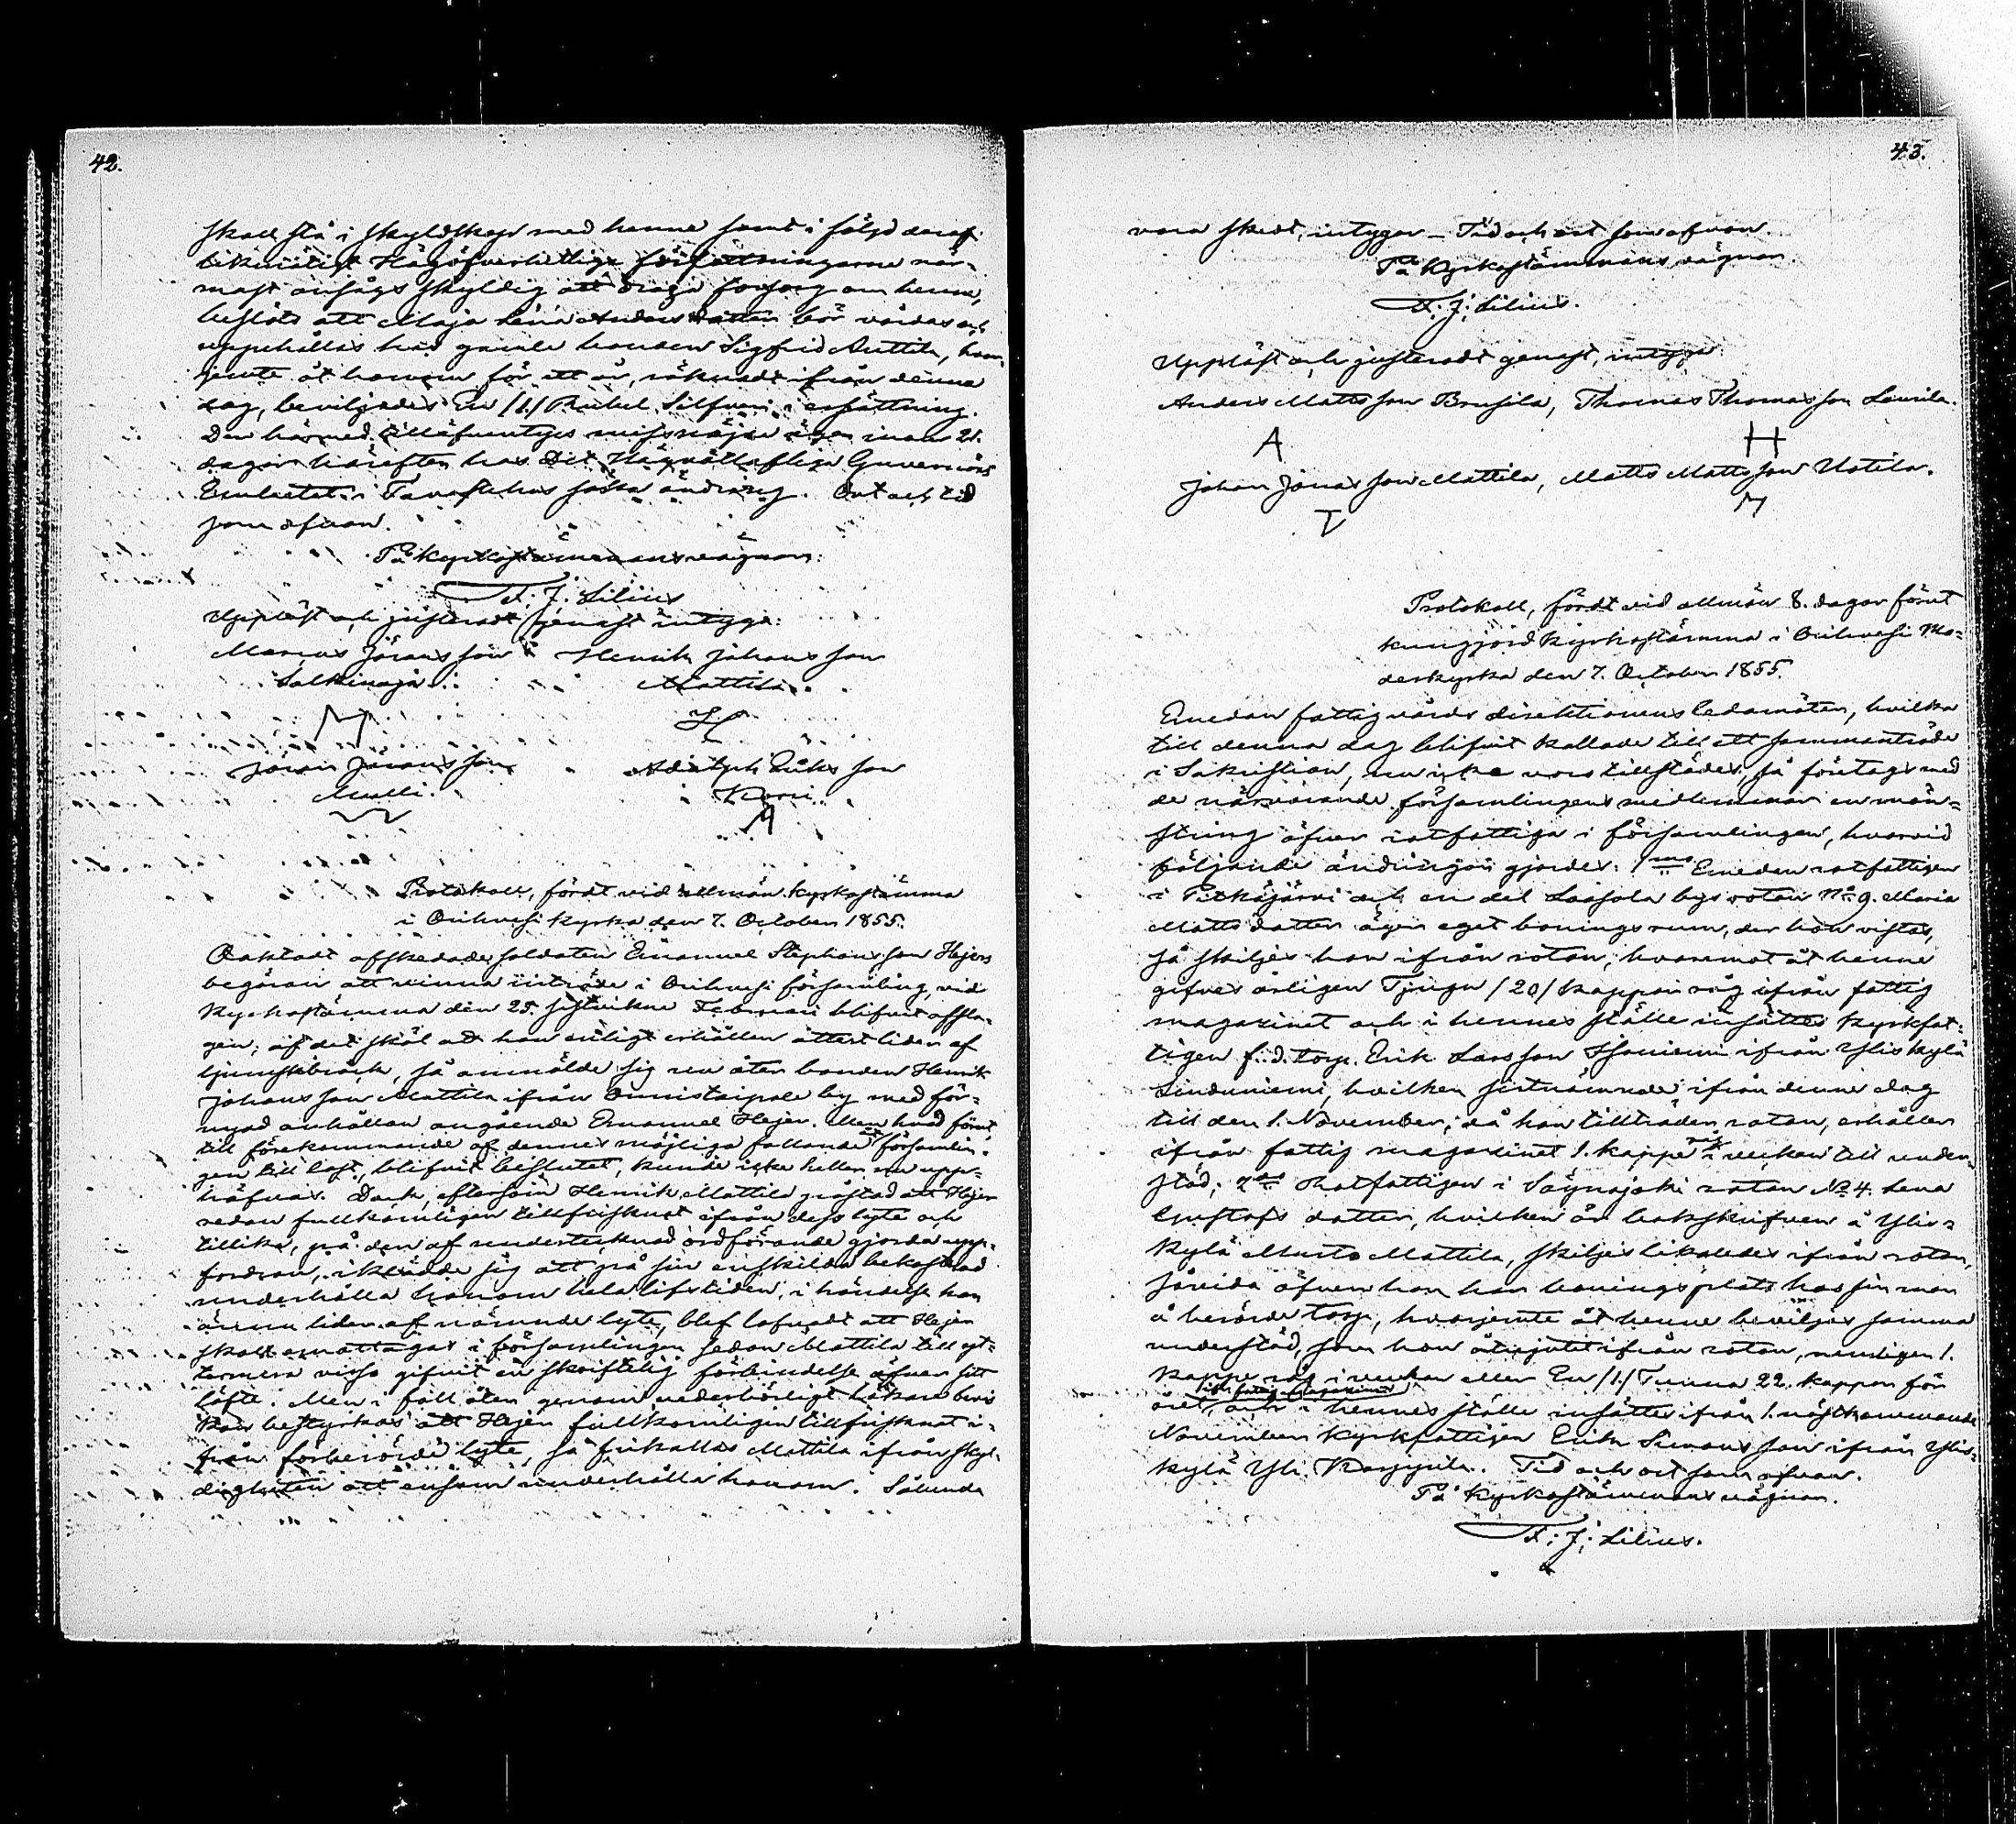 42.
skall stå i skyldskap med henne samt i följd deraf
likmätigt Högöfverhetliga författningarne när-
mast anfågs skyldig att draga försorg om henne,
beslöts att Maja Lena Anders dotter bör vårdas och
uppehållas hos gamle bonden Sigfrid Anttila, hvar-
jemte åt honom för ett år, räknadt ifrån denna
dag, beviljades En /1/ Rubel Silfver i ersättning.
Den härmed tilläfventyrs missnöjde äger inom 21.
dagar härefter hos Det Högvällofliga Guvernörs
Embetet i Tavastehus söka ändring. Ort och tid
som ofvan.
På Kyrkostämmans vägnar:
F. J. Lilius
Uppläst och justeradt genast intyga:
Marcus Jöransson Henrik Johansson
Salkinoja Mattila
M H
Jöran Jöransson Adolph Eriks son
Mulli. Korri.
Protokoll, fördt vid allmän kyrkostämma
i Orihvesi kyrka den 7. October 1855.
Oaktadt afskedade soldaten Emanuel Stephansson Hejers
begäran att vinna inträde i Orihvesi församling, vid
Kyrkostämma den 25. sistvikne Februari blifvit afsla-
gen, af det skäl att han enligt erhållen attest lider af
ljumskbråck, så anmälde sig nu åter bonden Henrik
Johansson Mattila ifrån Onnistaipale by med för-
nyad anhållan angående Emanuel Hejer. Men hvad förut,
till förekommande af dennes möjliga fallande församlin-
gen till last, blifvit beslutet, kunde icke heller nu upp-
häfvas. Dock, eftersom Henrik Mattila påstod att Hejer
redan fullkomligen tillfrisknat ifrån dess lyte och
tillika, på den af undertecknad ordförande gjorda upp-
fordran, iklädde sig att på sin enskilda bekostnad
underhålla honom hela lifstiden, i händelse han
ännu lider af nämnde lyte, blef lofvadt att Hejer
skall emottagas i församlingen sedan Mattila till yt-
termera visso gifvit en skriftelig förbindelse öfver sitt
löfte. Men i fall åter genom vederbörligt läkare bevis
kan bestyrkas att Hejer fullkomligen tillfrisknat i-
från förberörde lyte, så frikallas Mattila ifrån skyl-
digheten att ensam underhålla honom. Sålunda
43.
vara skedt, intygar _ Tid och ort som ofvan.
På Kyrkostämmans vägnar
F. J. Lilius.
Uppläst och justeradt genast, intyga:
Anders Matts son Brusila, Thomas Thomasson Laurila.
A H
Johan Jonas son Mattila, Matts Mattsson Uotila.
Protokoll, fördt vid allmän 8. dagar förut
kungjord Kyrkostämma i Orihvesi Mo-
derkyrka den 7. October 1855.
Emedan fattigvårds direktionens ledamöter, hvilka
till denna dag blifvit kallade till ett sammanträde
i Sakristian, nu icke voro tillstädes, så företogs med
de närvarande församlingens medlemmar en mön-
string öfver rotfattiga i församlingen, hvarvid
följande ändringar gjordes: 1mo Emedan rotfattigen
i Pitkäjärvi och en del Laasola bys rotan No 9. Maria
Matts dotter äger eget bonings rum, der hon vistas,
så skiljes hon ifrån rotan, hvaremot åt henne
gifves årligen Tjugu /20/ kappar råg ifrån fattig
magazinet och i hennes ställe insättes kyrkfat-
tigen f. d. torp. Erik Larsson ifrån Yliskylä
hvilken sistnämnde, ifrån denne dag
till den 1. November, då han tillträder rotan, erhåller
ifrån fattig magazinet 1. kappe råg i veckan till under-
stöd; 2do Rotfattigen i Vägnajoki rotan No 4. Lena
Gustafs dotter, hvilken är bokskrifven å Ylis-
kylä Musto Mattila, skiljes likaledes ifrån rotan,
såvida äfven hon har boningsplats hos sin man
å berörde torp, hvarjemte åt henne beviljas samma
understöd, som hon åtnjutit ifrån rotan, nemligen 1.
kappe råg i veckan eller En /1/ Tunna 22. kappar för
året, ifrån fattig magazinet och i hennes ställe insättes ifrån 1. nästkommande
November kyrkfattigen Erik Simons son ifrån Ylis-
kylä Yli. Tid och ort som ofvan.
På Kyrkostämmans vägnar.
F. J. Lilius.